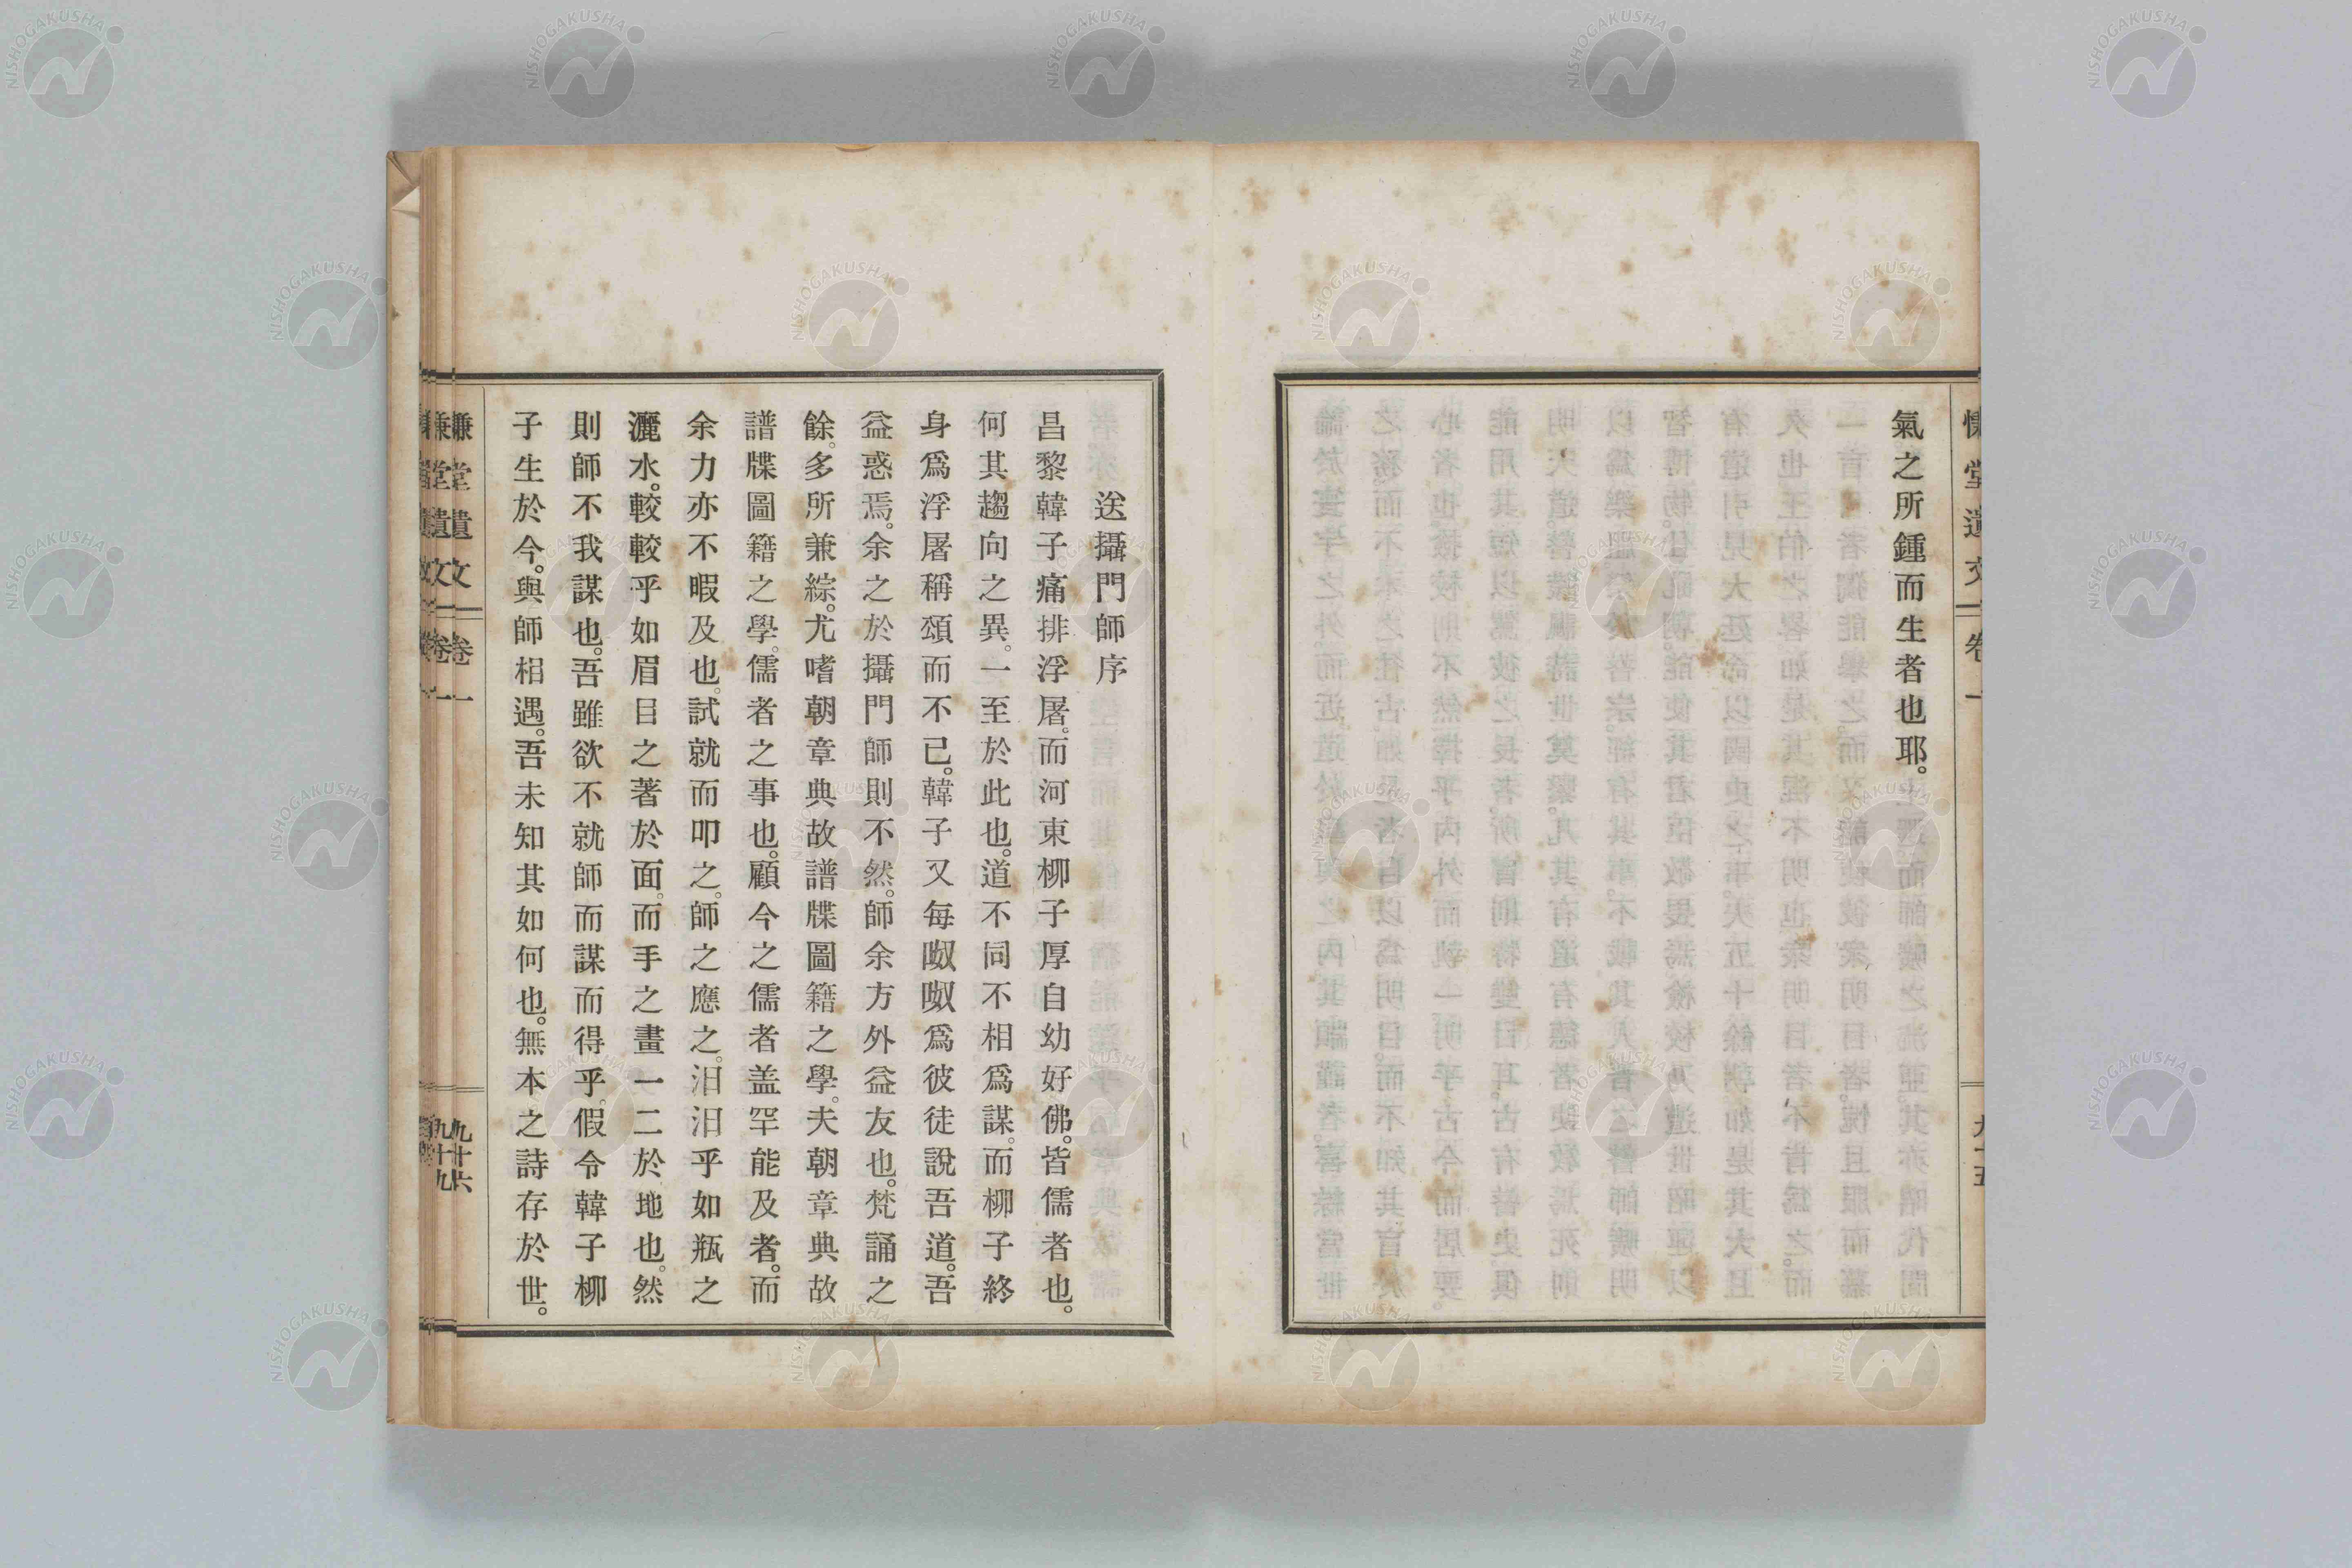 慊堂遺文 卷一
氣之所鍾而生者也耶。
送攝門師序
昌黎韓子痛排浮屠。而河東柳子厚自幼好佛。皆儒者也。
何其趨向之異。一至於此也。道不同不相爲謀。而柳子終
身爲浮屠稱頌而不已。韓子又每呶呶爲彼徒說吾道。吾
益惑焉。余之於攝門師則不然。師余方外益友也。梵誦之
餘。多所兼綜。尤嗜朝章典故譜牒圖籍之學。夫朝章典故
譜牒圖籍之學。儒者之事也。顧今之儒者盖罕能及者。而
余力亦不暇及也。試就而叩之。師之應之。汩汩乎如瓶之
灑水。較較乎如眉目之著於面。而手之畫一二於地也。然
則師不我謀也。吾雖欲不就師而謀而得乎。假令韓子柳
子生於今。與師相遇。吾未知其如何也。無本之詩存於世。
九十六
九十九
NISHOGAKUSHA